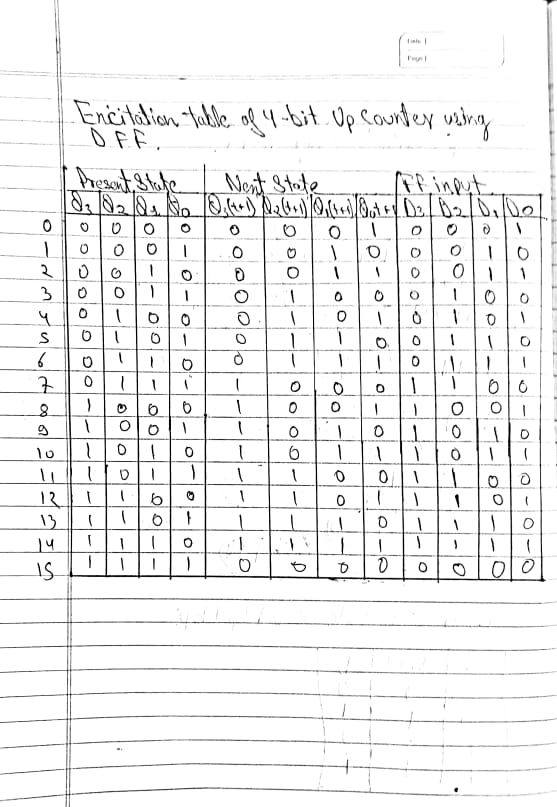 Date |
Page |
Encitation table of 4-bit Up Counter using
D FF.
Present State Next State FF input
Q3 Q2 Q1 Q0 Q3(t+1) Q2(t+1) Q1(t+1) Q0t+1 D3 D2 D1 D0
0 0 0 0 0 0 0 0 1 0 0 0 1
1 0 0 0 1 0 0 1 0 0 0 1 0
2 0 0 1 0 0 0 1 1 0 0 1 1
3 0 0 1 1 0 1 0 0 0 1 0 0
4 0 1 0 0 0 1 0 1 0 1 0 1
5 0 1 0 1 0 1 1 0 0 1 1 0
6 0 1 1 0 0 1 1 1 0 1 1 1
7 0 1 1 1 1 0 0 0 1 1 0 0
8 1 0 0 0 1 0 0 1 1 0 0 1
9 1 0 0 1 1 0 1 0 1 0 1 0
10 1 0 1 0 1 0 1 1 1 0 1 1
11 1 0 1 1 1 1 0 0 1 1 0 0
12 1 1 0 0 1 1 0 1 1 1 0 1
13 1 1 0 1 1 1 1 0 1 1 1 0
14 1 1 1 0 1 1 1 1 1 1 1 1
15 1 1 1 1 0 0 0 0 0 0 0 0